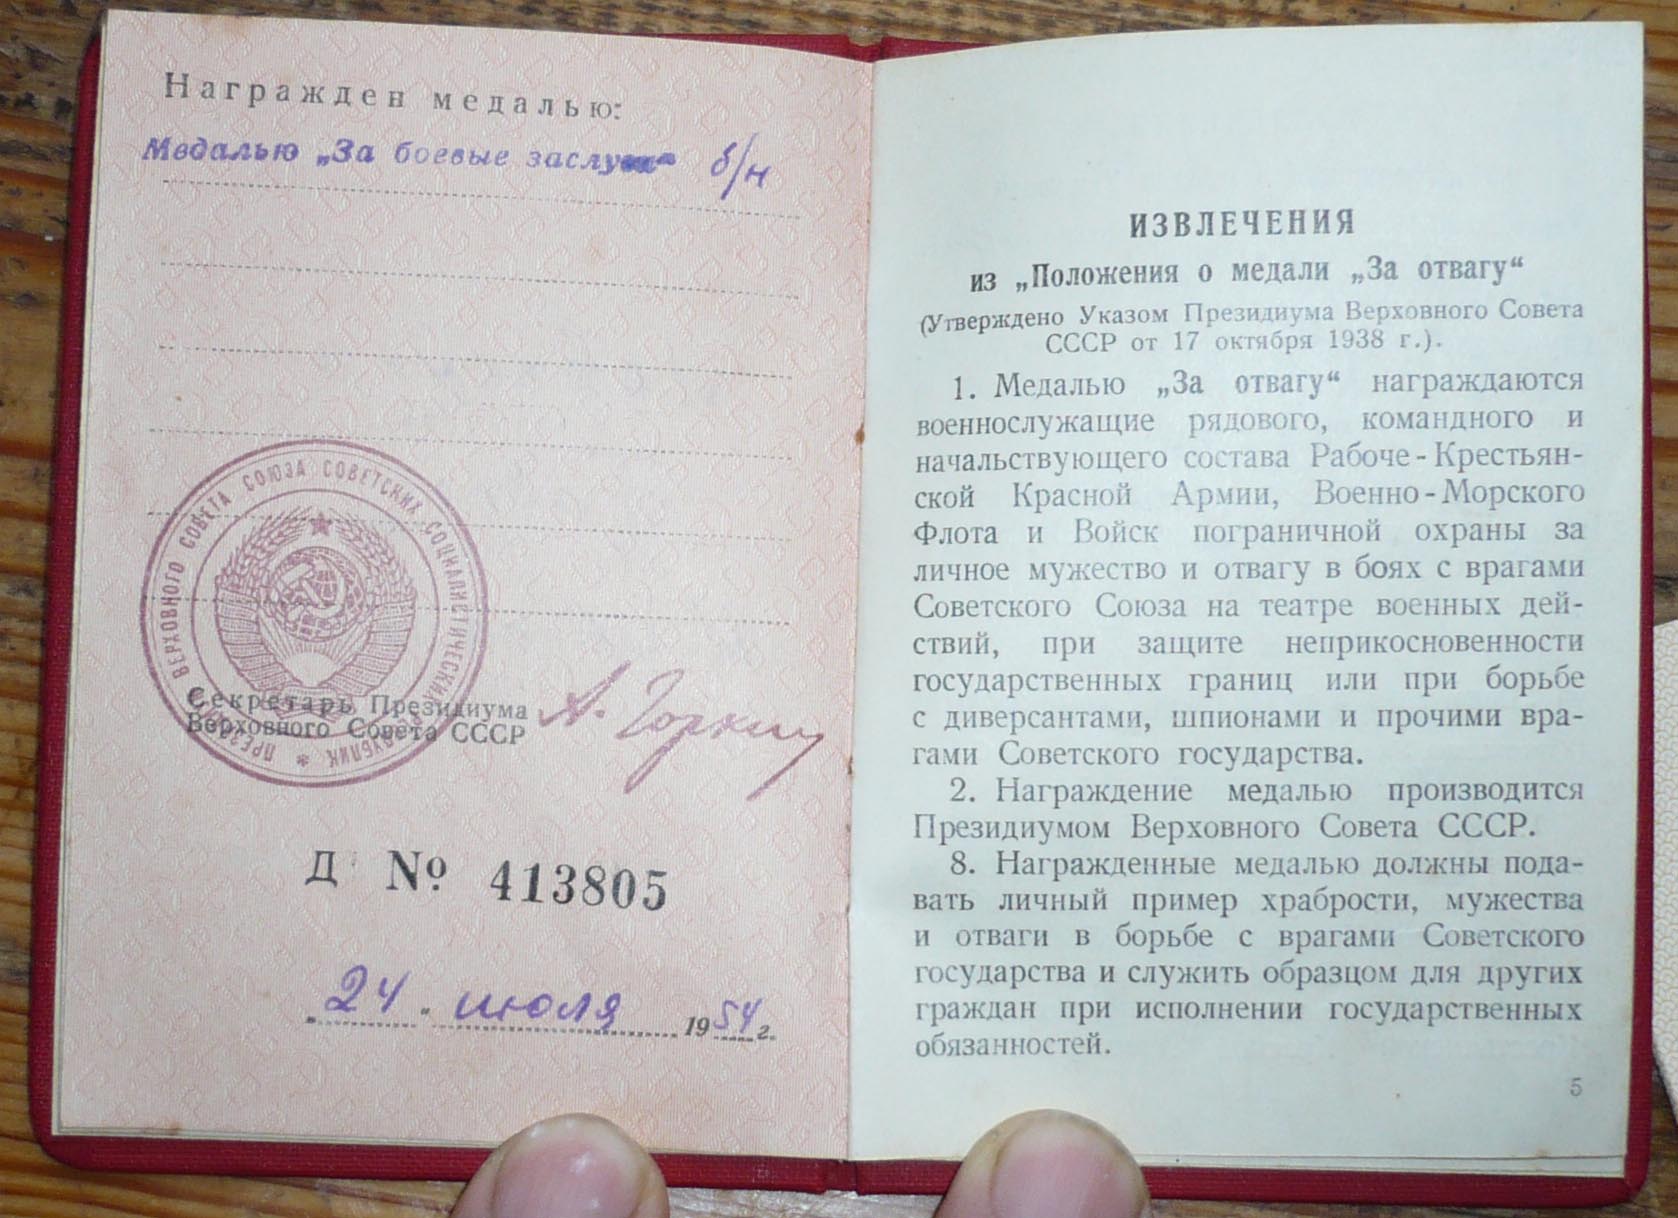 Награжден медалью:
Медалью „За боевые заслуги“ б/н
ПРЕЗИДИУМ ВЕРХОВНОГО СОВЕТА СОЮЗА СОВЕТСКИХ СОЦИАЛИСТИЧЕСКИХ РЕСПУБЛИК *
Секретарь Президиума
Верховного Совета СССР
А. Горкин
Д № 413805
„24“ июля 1954 г.
ИЗВЛЕЧЕНИЯ
из „Положения о медали „За отвагу“
(Утверждено Указом Президиума Верховного Совета
СССР от 17 октября 1938 г.).
1. Медалью „За отвагу“ награждаются
военнослужащие рядового, командного и
начальствующего состава Рабоче-Крестьян-
ской Красной Армии, Военно-Морского
Флота и Войск пограничной охраны за
личное мужество и отвагу в боях с врагами
Советского Союза на театре военных дей-
ствий, при защите неприкосновенности
государственных границ или при борьбе
с диверсантами, шпионами и прочими вра-
гами Советского государства.
2. Награждение медалью производится
Президиумом Верховного Совета СССР.
8. Награжденные медалью должны пода-
вать личный пример храбрости, мужества
и отваги в борьбе с врагами Советского
государства и служить образцом для других
граждан при исполнении государственных
обязанностей.
5